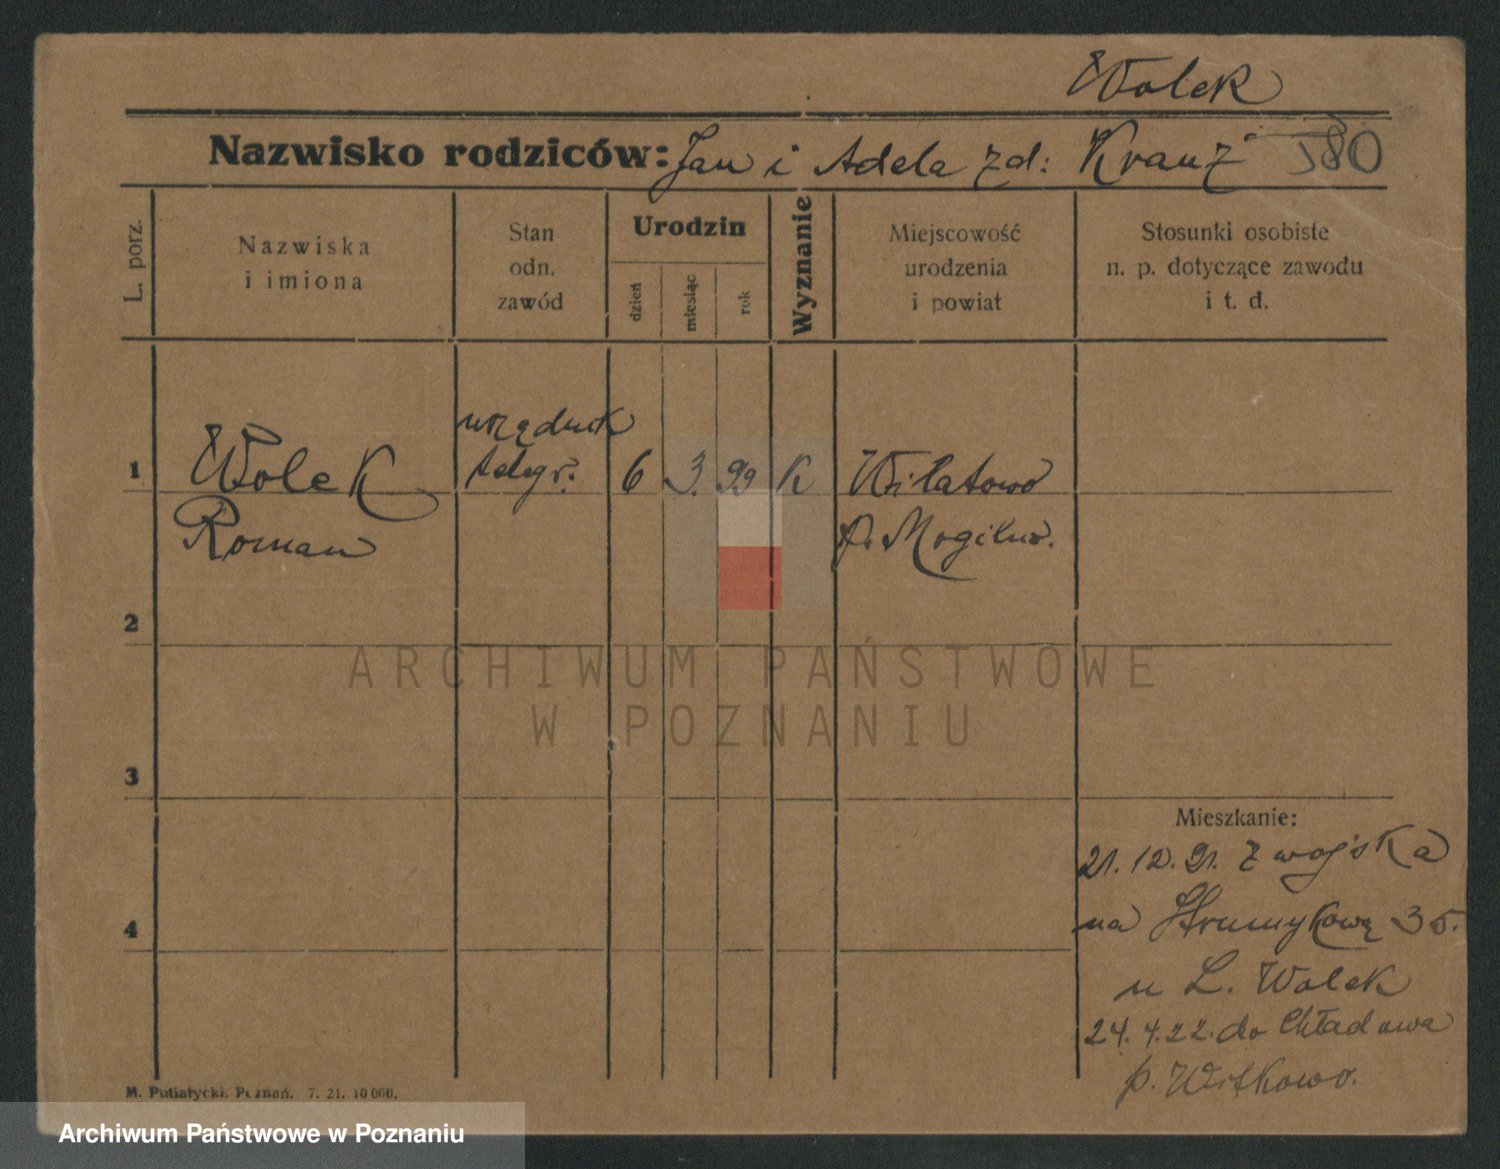 Wolek
Nazwisko rodziców: Jan i Adela zd: Kranz 580
L. porz.
Nazwiska
i imiona
Stan
odn.
zawód
Urodzin
dzień
miesiąc
rok
Wyznanie
Miejscowość
urodzenia
i powiat
Stosunki osobiste
n. p. dotyczące zawodu
i t. d.
urzędnik
1 Wolek telegr. 6 3. 99 K Wilatowo
Roman p. Mogilno.
2
ARCHIWUM PAŃSTWOWE
W POZNANIU
3
Mieszkanie:
21. 12. 21. z wojska
4 na Strumykową 35.
u L. Wolek
24. 4. 22. do Chładowa
p. Witkowo.
M. Putiatycki. Poznań. 7. 21. 10 000.
Archiwum Państwowe w Poznaniu